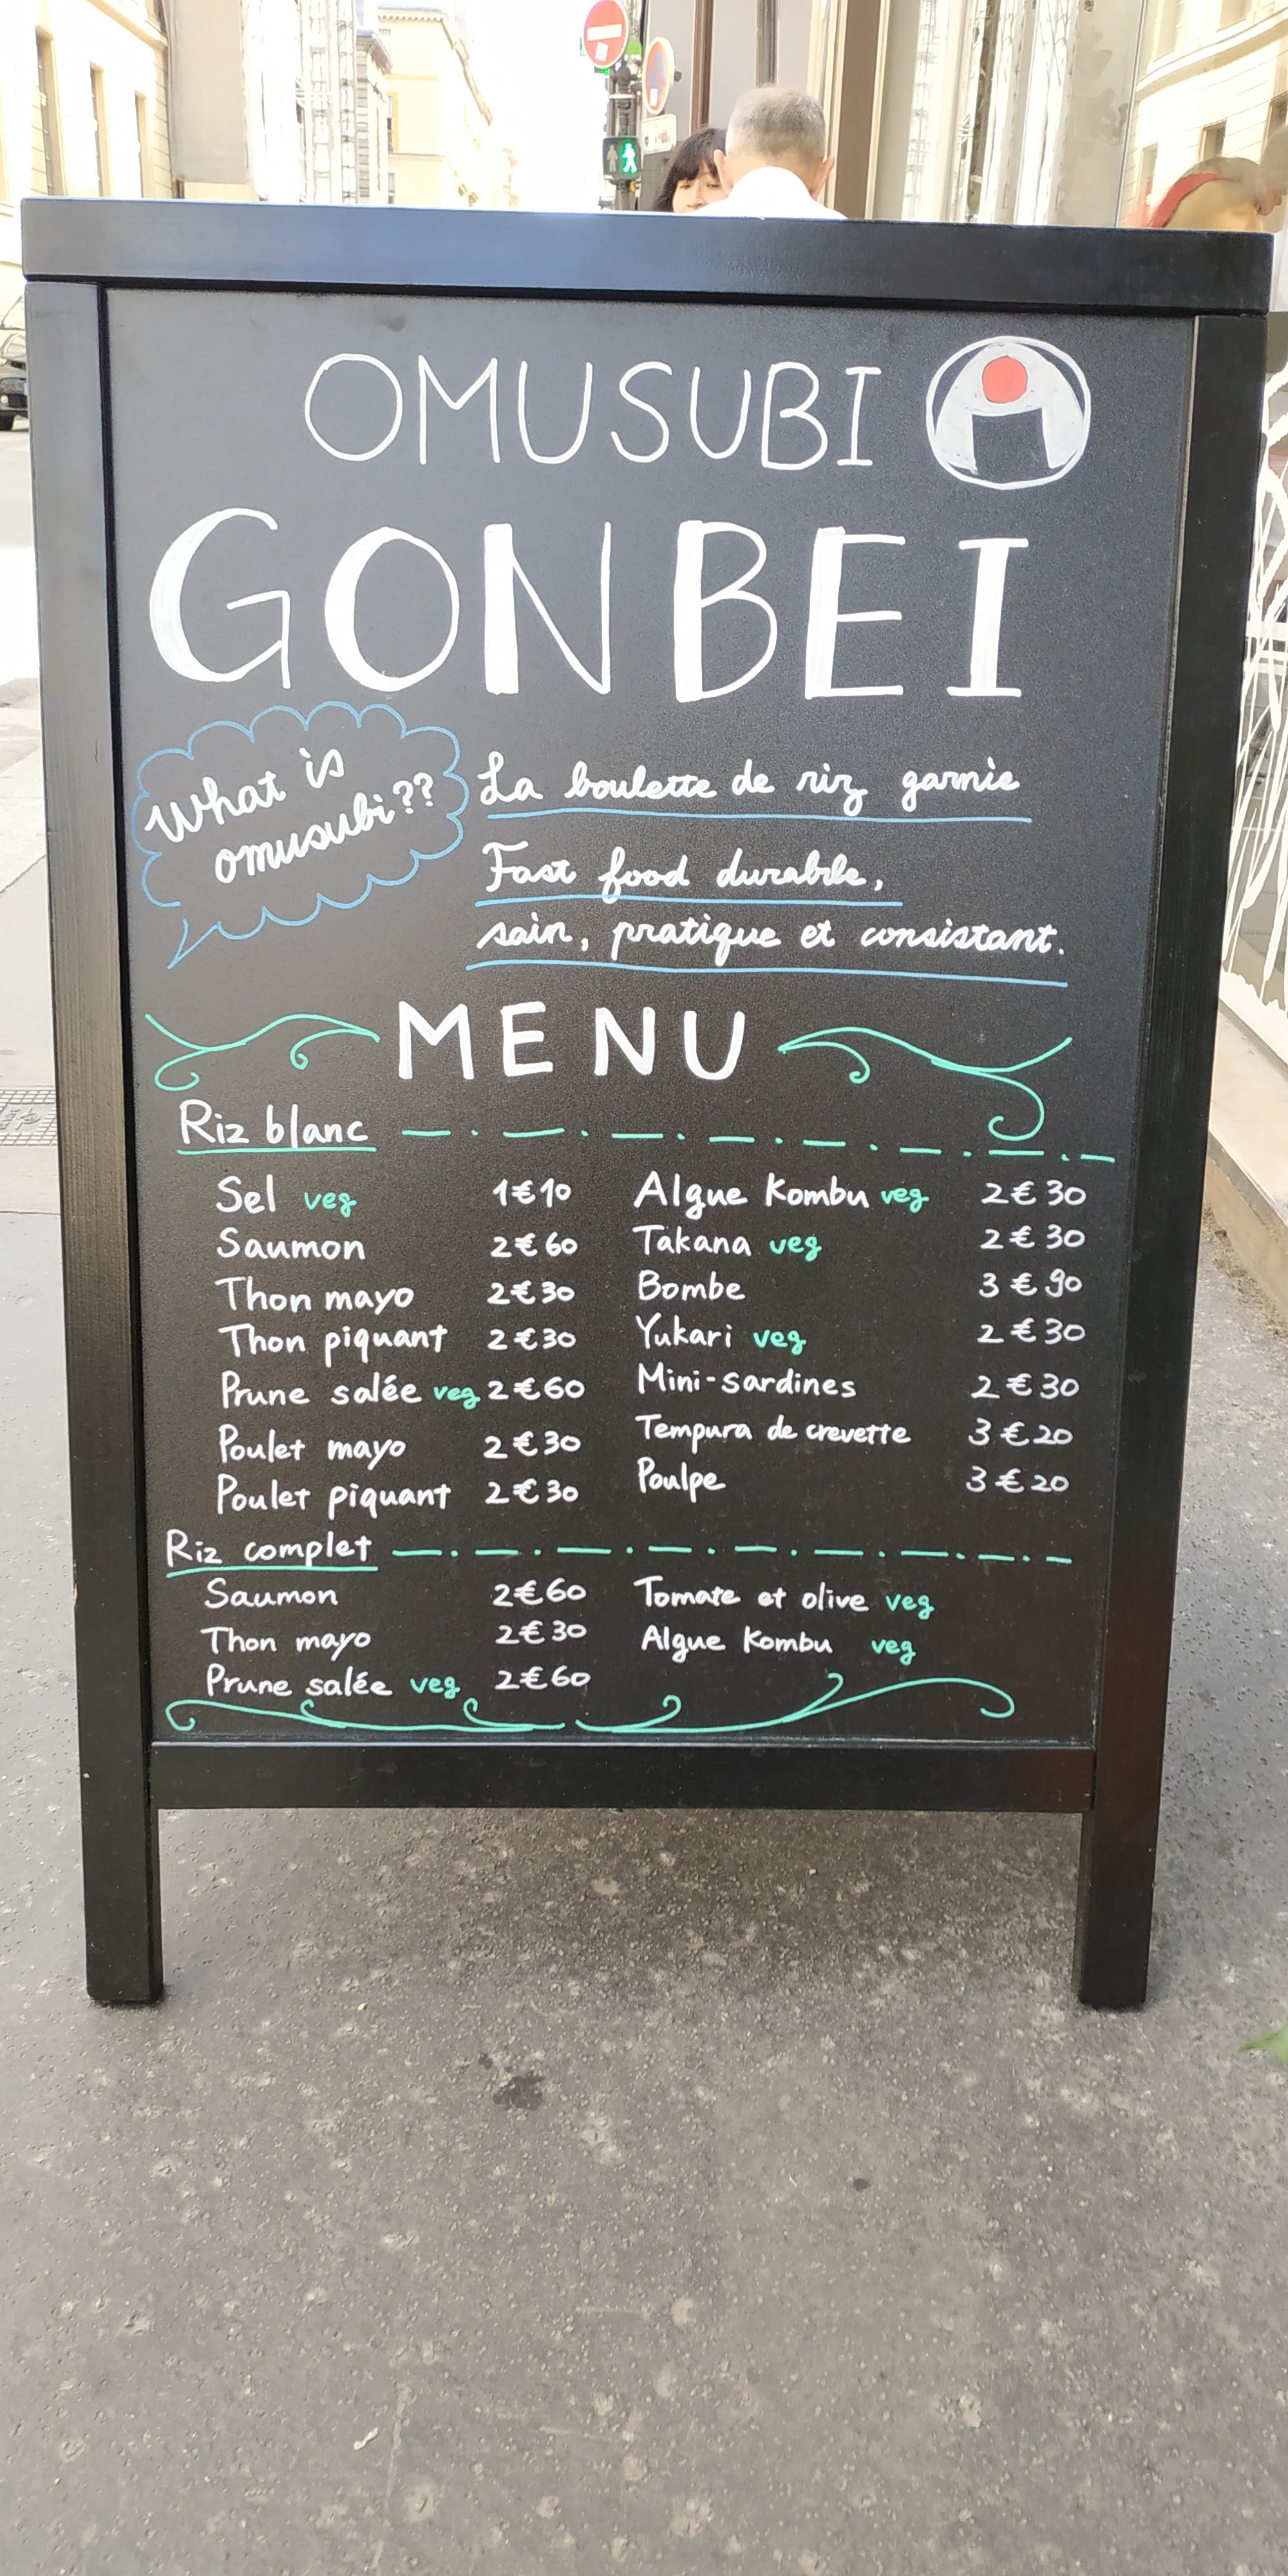 OMUSUBI
GONBEI
What is
omusubi??
La boulette de riz garnie
Fast food durable,
sain, pratique et consistant.
MENU
Riz blanc
Sel veg 1€10
Saumon 2€60
Thon mayo 2€30
Thon piquant 2€30
Prune salée veg 2€60
Poulet mayo 2€30
Poulet piquant 2€30
Algue Kombu veg 2€30
Takana veg 2€30
Bombe 3€90
Yukari veg 2€30
Mini-sardines 2€30
Tempura de crevette 3€20
Poulpe 3€20
Riz complet
Saumon 2€60
Thon mayo 2€30
Prune salée veg 2€60
Tomate et olive veg
Algue Kombu veg